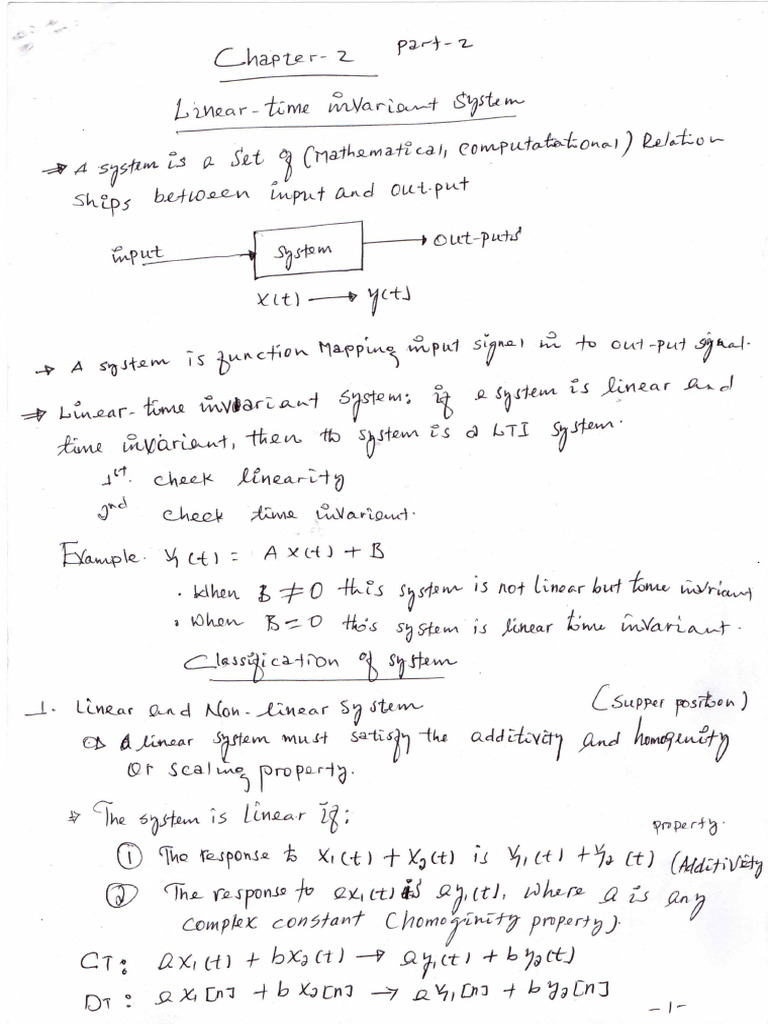 Chapter-2 part-2
Linear-time invariant System
⇒ A system is a Set of (Mathematical, computatational) Relation
Ships between input and out-put
input → system → out-puts
x(t) → y(t)
→ A system is function Mapping input signal in to out-put signal.
⇒ Linear-time invariant System: if a system is linear and
time invariant, then th system is a LTI system.
1st. check linearity
2nd check time invarient.
Example. y1(t) = A x(t) + B
• When B ≠ 0 this system is not linear but tome invriant
• When B = 0 this system is linear time invariant.
Classification of system
1. Linear and Non-linear System (Supper position)
A linear system must satisfy the additivity and homogenity
or scaling property.
⇒ The system is linear if: property.
① The response to x1(t) + x2(t) is y1(t) + y2(t) (Additivity
② The response to ax1(t) is ay1(t), where a is any
complex constant (homoginity property).
CT: ax1(t) + bx2(t) → ay1(t) + by2(t)
DT: ax1[n] + bx2[n] → ay1[n] + by2[n]
-1-